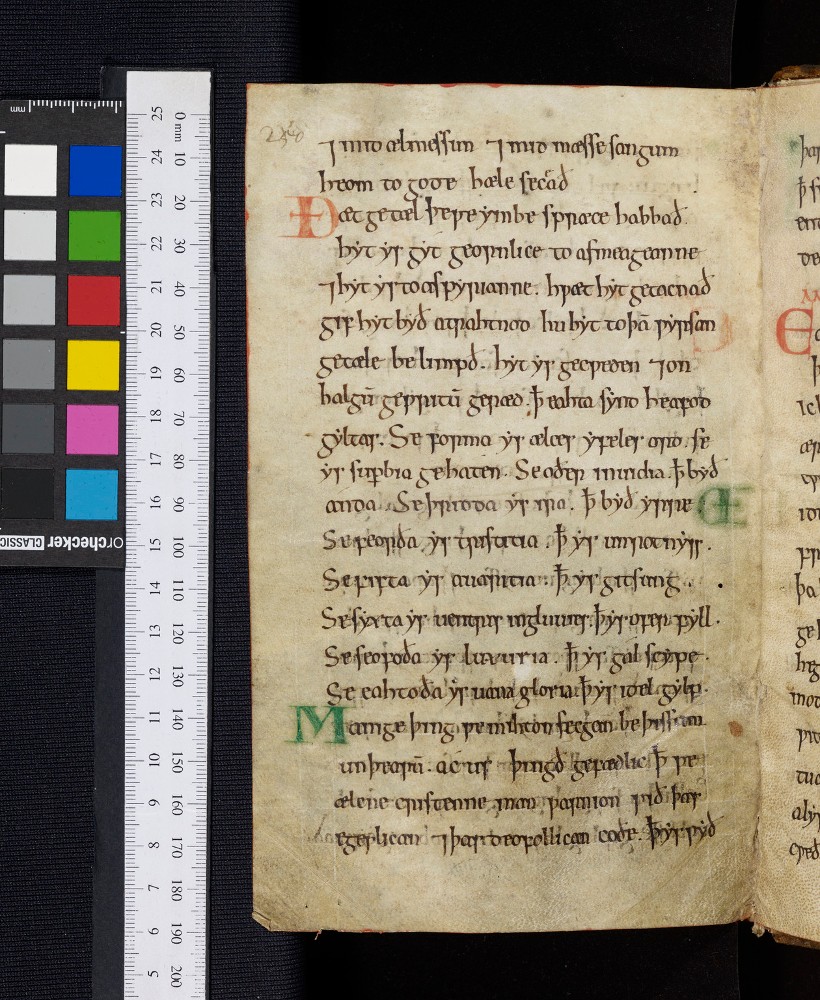 ⁊ mid ælmessum ⁊ mid mæsse sangum
heom to gode hæle secað
Ðæt getæl þe we ymbe spræce habbað
hyt ys gyt geornlice to asmeageanne
⁊ hyt ys to aspyrianne. hwæt hyt getacnað
gif hyt byð atrahtnod hu hyt to þā wynsan
getæle belimpð. hyt ys gecweden ⁊ on
halgū gewritū geræd. ꝥ eahta synd heafod
gyltas. Se forma ys ælces yfeles ord. se
ys suꝑbia gehaten. Se oðer inuidia. ꝥ byð
anda. Se þridda ys ira. ꝥ byð yrre
Se feorða ys tristitia. ꝥ ys unrotnyss.
Se fifta ys auaritia. ꝥ ys gitsung.
Se syxta ys uentris ingluuies. ꝥ ys ofer fyll.
Se seofoða ys luxuria. ꝥ ys gal scype.
Se eahtoða ys uana gloria ꝥ ys idel gylp.
Mænige þing we mihton secgan be þissum
unþeawū. ac us þingð gerædlic ꝥ we
ælcne cristenne man warnion wið þas
egeslican ⁊ þas deofollican coðe. ꝥ ys wyð
0 mm 10 20 30 40 50 60 70 80 90 100 110 120 130 140 150 160 170 180 190 200
25 24 23 22 21 20 19 18 17 16 15 14 13 12 11 10 9 8 7 6 5
mm
orchecker CLASSIC